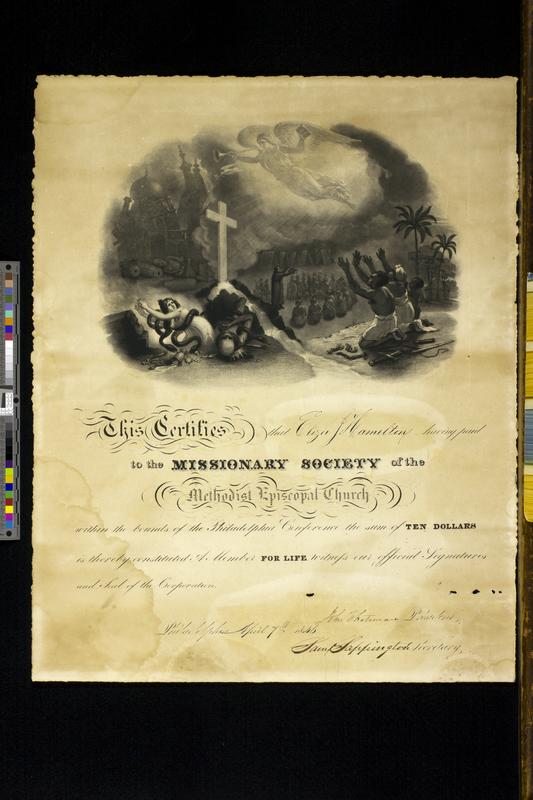 This Certifies that Eliza J Hamelton having paid
to the MISSIONARY SOCIETY of the
Methodist Episcopal Church
within the bounds of the Philadelphia Conference the sum of TEN DOLLARS
is thereby constituted A Member FOR LIFE witness our official Signatures
and Seal of the Corporation.
President,
Philadelphia April 7th
Saml Sappington Secretary,